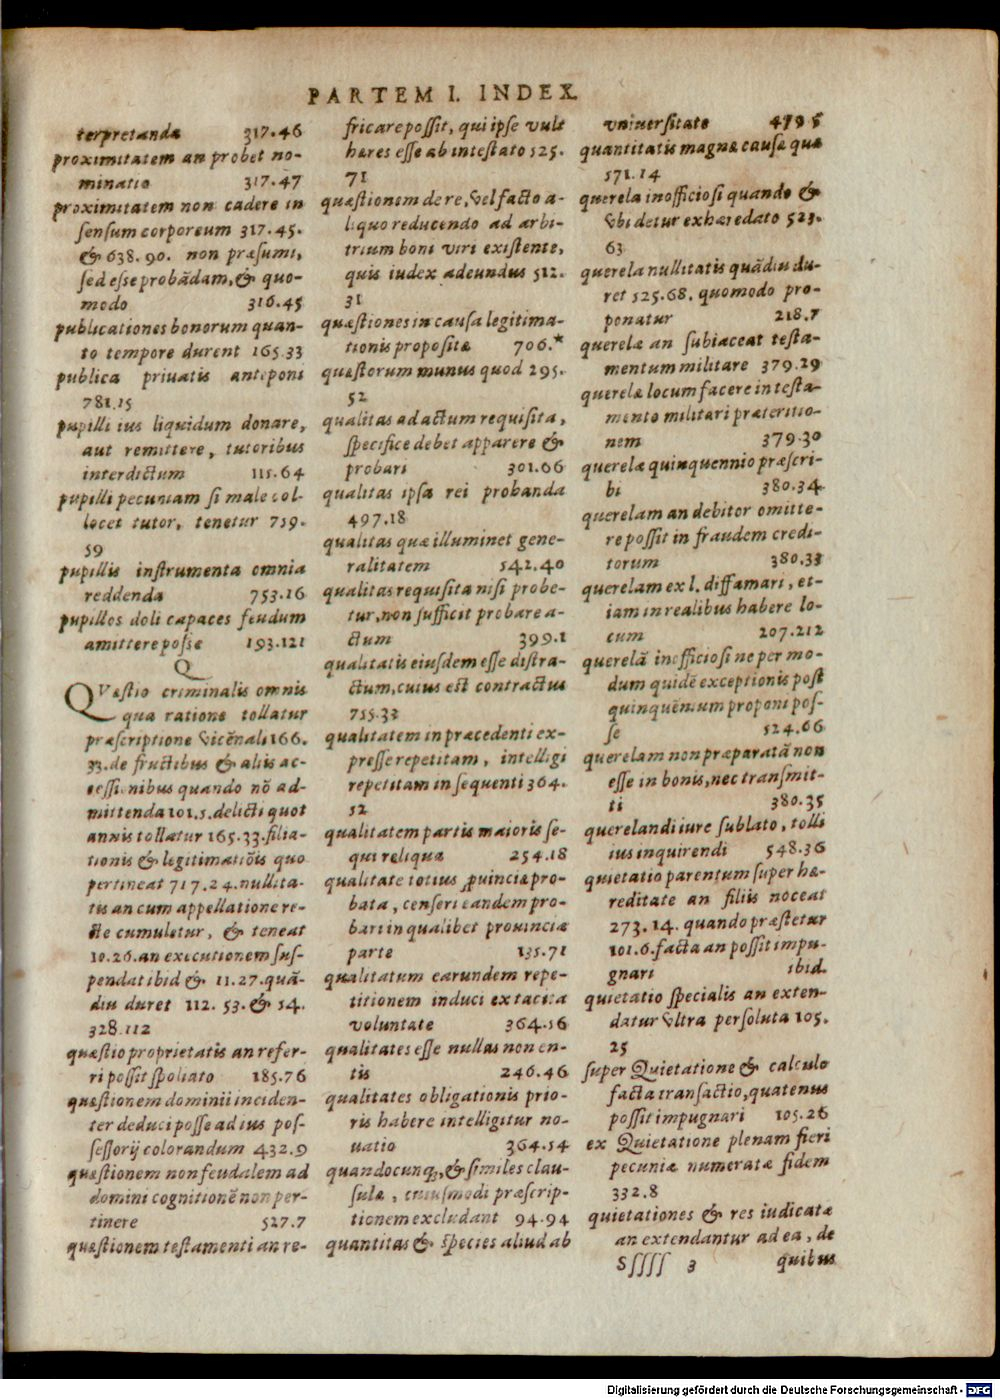 PARTEM I. INDEX
terpretanda 317.46
proximitatem an probet no-
minatio 317.47
proximitatem non cadere in
sensum corporeum 317.45.
& 638.90. non præsumi,
sed esse probãdam, & quo-
modo 316.45
publicationes bonorum quan-
to tempore durent 165.33
publica priuatis anteponi
781.15
pupilli ius liquidum donare,
aut remittere, tutoribus
interdictum 115.64
pupilli pecuniam si male col-
locet tutor, tenetur 759.
59
pupillis instrumenta omnia
reddenda 753.16
pupillos doli capaces feudum
amittere posse 193.121
Q
QVæstio criminalis omnis
qua ratione tollatur
præscriptione vicẽnali 166.
33. de fructibus & aliis ac-
cessionibus quando nõ ad-
mittenda 101.5. delicti quot
annis tollatur 165.33. filia-
tionis & legitimatiõis quo
pertineat 717.24. nullita-
tis an cum appellatione re-
cte cumuletur, & teneat
10.26. an executionem sus-
pendat ibid & 11.27. quã-
diu duret 112. 53. & 54.
328.112
quæstio proprietatis an refer-
ri possit spoliato 185.76
quæstionem dominii inciden-
ter deduci posse ad ius pos-
sessorij colorandum 432.9
quæstionem non feudalem ad
domini cognitionẽ non per-
tinere 527.7
quæstionem testamenti an re-
fricare possit, qui ipse vult
hæres esse ab intestato 525.
71
quæstionem de re, vel facto a-
liquo reducendo ad arbi-
trium boni viri existente,
quis iudex adeundus 512.
31
quæstiones in causa legitima-
tionis propositæ 706.*
quæstorum munus quod 295.
52
qualitas ad actum requisita,
specifice debet apparere &
probari 301.66
qualitas ipsa rei probanda
497.18
qualitas quæ illuminet gene-
ralitatem 542.40
qualitas requisita nisi probe-
tur, non sufficit probare a-
ctum 399.1
qualitatis eiusdem esse distra-
ctum, cuius est contractus
755.33
qualitatem in præcedenti ex-
presse repetitam, intelligi
repetitam in sequenti 364.
52
qualitatem partis maioris se-
qui reliqua 254.18
qualitate totius ꝓuinciæ pro-
bata, censeri eandem pro-
bari in qualibet prouinciæ
parte 135.71
qualitatum earundem repe-
titionem induci ex tacita
voluntate 364.56
qualitates esse nullas non en-
tis 246.46
qualitates obligationis prio-
ris habere intelligitur no-
uatio 364.54
quandocunq;, & similes clau-
sulæ, cuiusmodi præscrip-
tionem excludant 94.94
quantitas & species aliud ab
vniuersitate
quantitatis magnæ causæ quæ
571.14
querela inofficiosi quando &
vbi detur exhæredato 523.
63
querela nullitatis quãdiu du-
ret 525.68. quomodo pro-
ponatur 218.7
querelæ an subiaceat testa-
mentum militare 379.29
querelæ locum facere in testa-
mento militari præteritio-
nem 379.30
querelæ quinquennio præscri-
bi 380.34
querelam an debitor omitte-
re possit in fraudem credi-
torum 380.33
querelam ex l. diffamari, et-
iam in realibus habere lo-
cum 207.212
querelã inofficiosi ne per mo-
dum quidẽ exceptionis post
quinquẽnium proponi pos-
se 524.66
querelam non præparatã non
esse in bonis, nec transmit-
ti 380.35
querelandi iure sublato, tolli
ius inquirendi 548.36
quietatio parentum super hæ-
reditate an filiis noceat
273.14. quando præstetur
101.6. facta an possit impu-
gnari ibid.
quietatio specialis an exten-
datur vltra persoluta 105.
25
super Quietatione & calculo
facta transactio, quatenus
possit impugnari 105.26
ex Quietatione plenam fieri
pecuniæ numeratæ fidem
332.8
quietationes & res iudicatæ
an extendantur ad ea, de
Sſſſſ 3 quibus
Digitalisierung gefördert durch die Deutsche Forschungsgemeinschaft - DFG